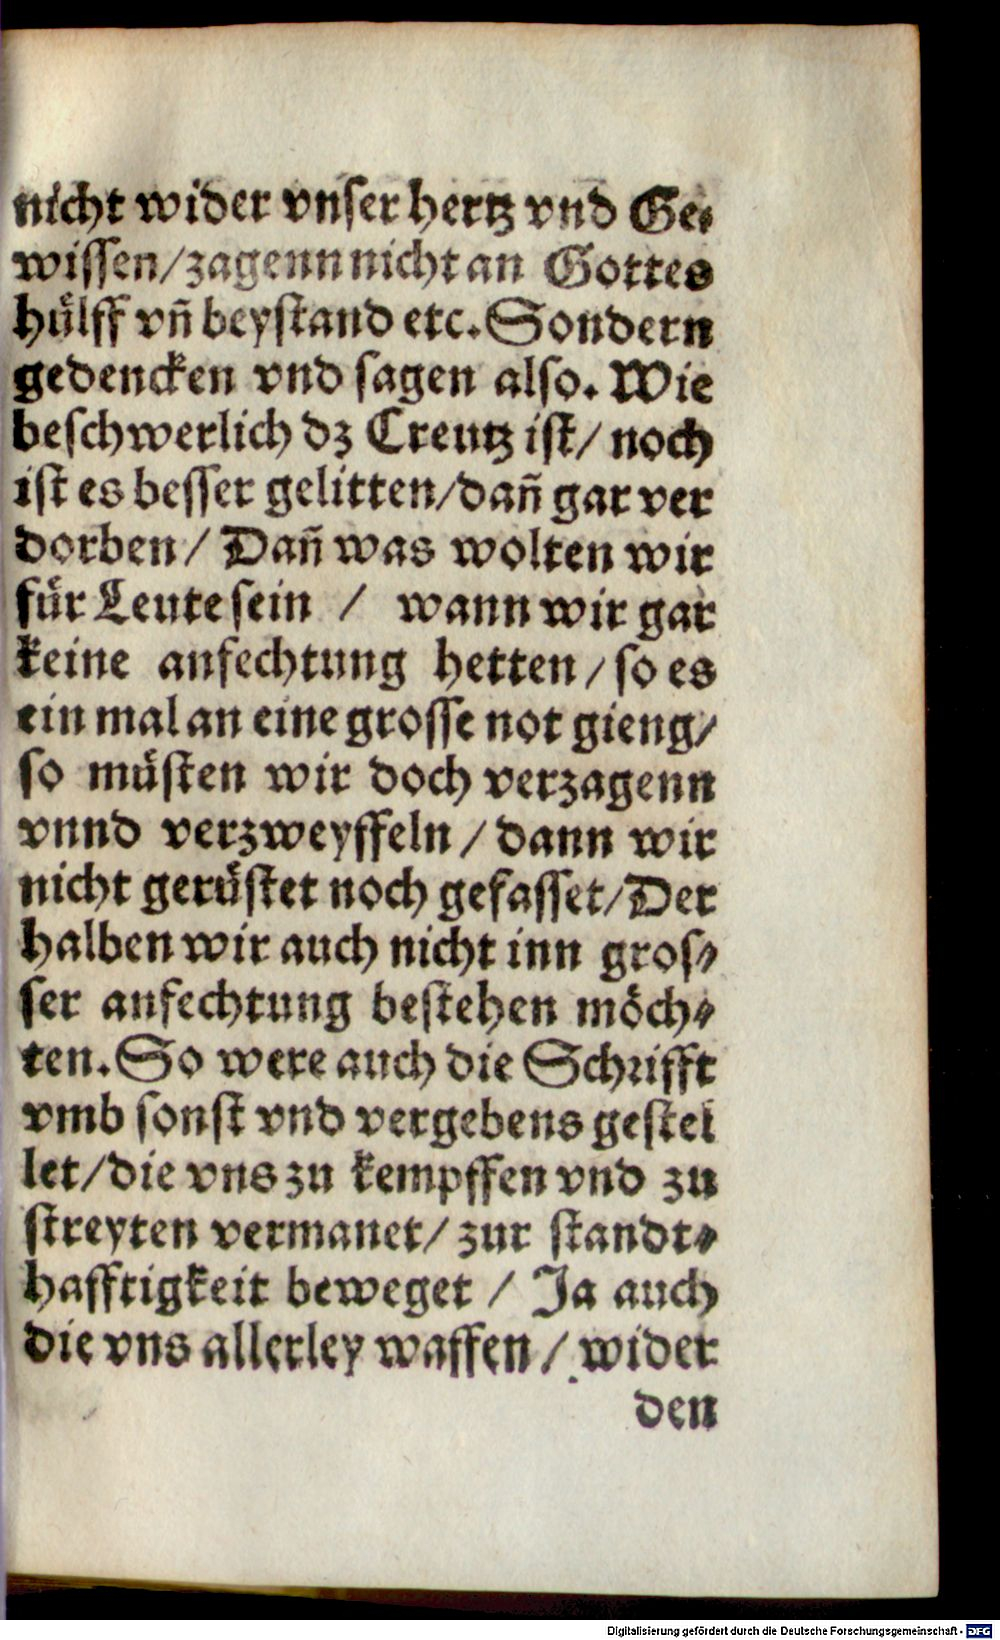 nicht wider vnser hertz vnd Ge⸗
wissen/zagenn nicht an Gottes
hülff vñ beystand etc. Sondern
gedencken vnd sagen also. Wie
beschwerlich dz Creutz ist/ noch
ist es besser gelitten/dañ gar ver
dorben/ Dañ was wolten wir
für Leute sein / wann wir gar
keine anfechtung hetten/so es
ein mal an eine grosse not gieng/
so müsten wir doch verzagenn
vnnd verzweyffeln/dann wir
nicht gerüstet noch gefasset/Der
halben wir auch nicht inn gros⸗
ser anfechtung bestehen möch⸗
ten. So were auch die Schrifft
vmb sonst vnd vergebens gestel
let/die vns zu kempffen vnd zu
streyten vermanet/ zur standt⸗
hafftigkeit beweget / Ja auch
die vns allerley waffen/ wider
den
Digitalisierung gefördert durch die Deutsche Forschungsgemeinschaft - DFG